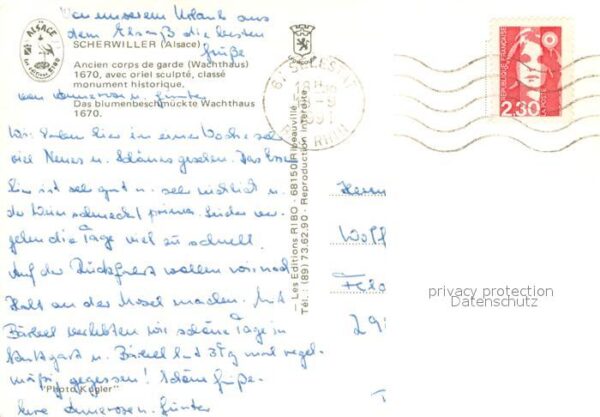 Von unserem Urlaub aus
dem Elsaß die besten
Grüße
ALSACE
SCHERWILLER (Alsace)
Ancien corps de garde (Wachthaus)
1670, avec oriel sculpté, classé
monument historique,
von Annerose u. Günter
Das blumenbeschmückte Wachthaus
1670.
Wir haben hier in einer Woche sehr
viel Neues u. Schönes gesehen. Das Essen
hier ist sehr gut u. sehr reichlich u.
der Wein schmeckt prima. Leider ver-
gehen die Tage viel zu schnell.
Auf der Rückfahrt wollen wir noch
Halt an der Mosel machen. Mit
Bärbel verlebten wir schöne Tage in
Stuttgart u. Bärbel hat 3 Tg mal regel-
mäßig gegessen! Schöne Grüße
"Photo Kugler"
Eure Annerose u. Günter
— Les Editions RIBO - 68150 Ribeauvillé —
Tél.: (89) 73.62.90 - Reproduction interdite
67 SELESTAT
RHIN
REPUBLIQUE FRANÇAISE
LA POSTE
2,30
Herrn
Wolf
29
privacy protection
Datenschutz